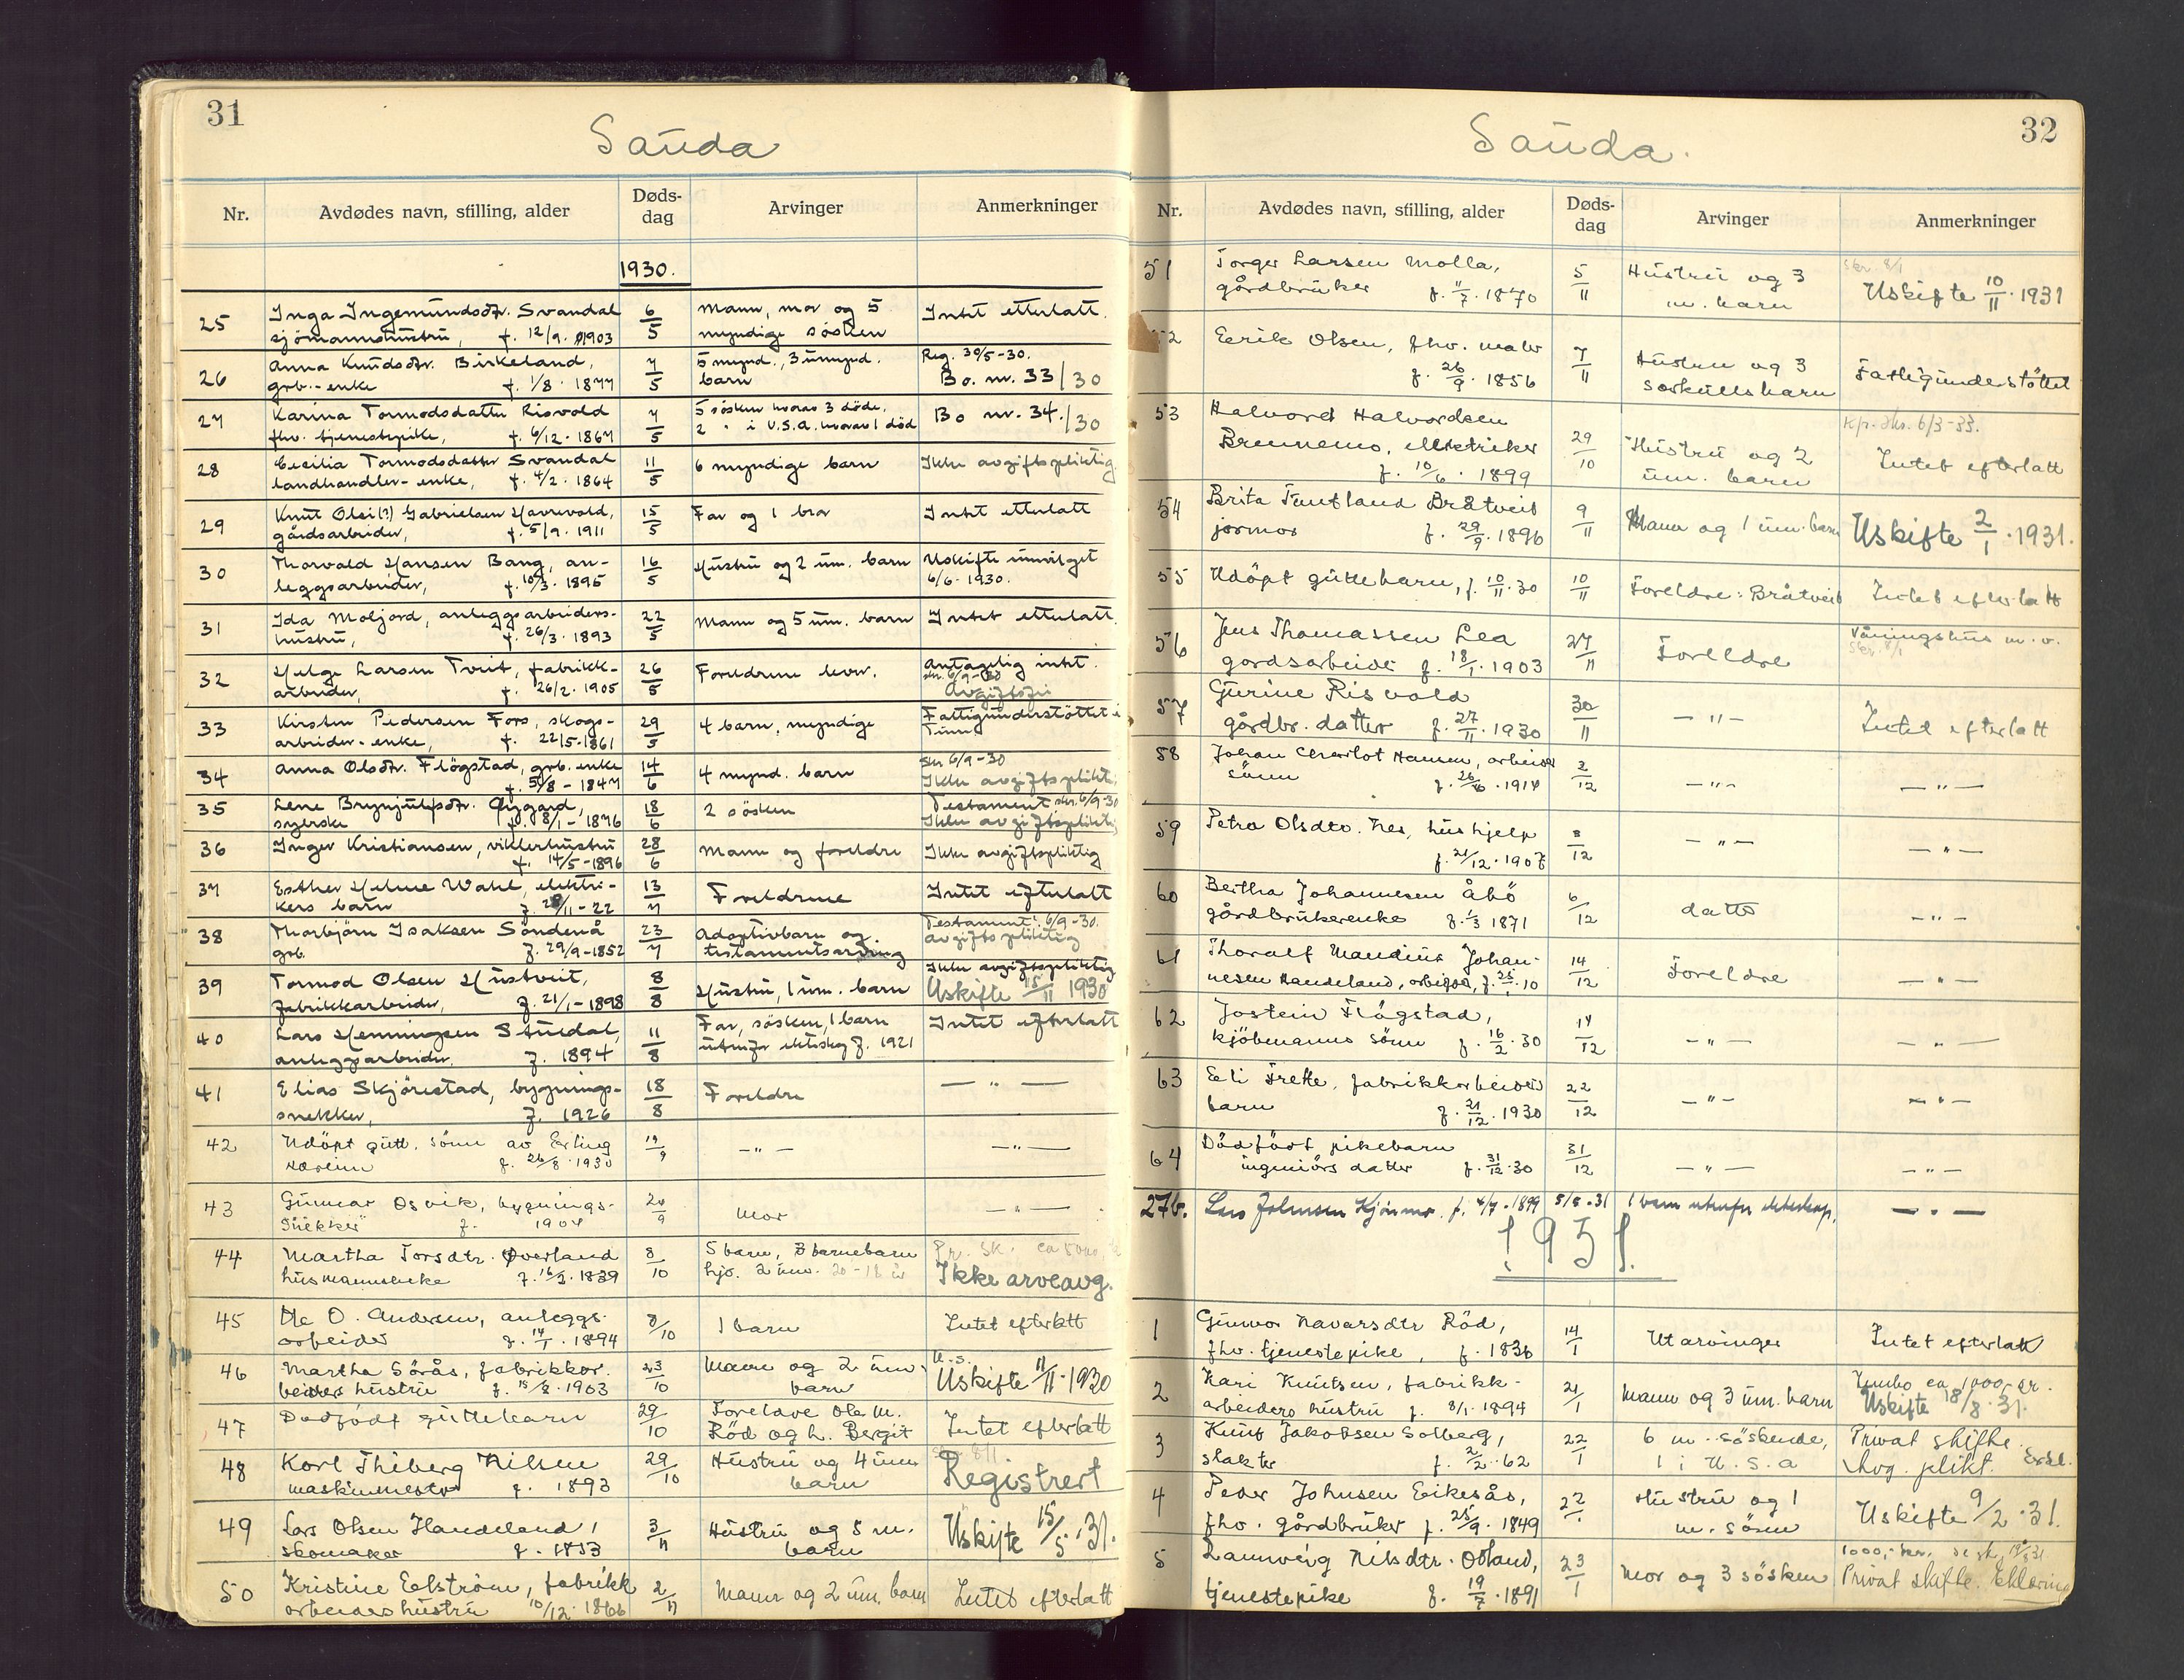 31
Sauda
Nr. Avdødes navn, stilling, alder Døds-dag Arvinger Anmerkninger
1930.
25 Inga Ingemundsdtr. Svandal 6/5 Mann, mor og 5 Intet etterlatt.
sjömannshustru, f. 12/9. 1903 myndige sösken
26 Anna Knudsdtr. Birkeland, 7/5 5 mynd., 3 umynd. Reg. 30/5-30.
grb.-enke f. 1/8. 1877 barn Bo. nr. 33/30
27 Karina Tormodsdatter Risvold 7/5 5 sösken hvorav 3 döde, Bo nr. 34./30
fhv. tjenestepike, f. 6/12. 1867 2 " i U.S.A. hvorav 1 död
28 Cecilia Tormodsdatter Svandal 11/5 6 myndige barn Ikke avgiftspliktig
landhandler-enke, f. 4/2. 1864
29 Knut Olai(?) Gabrielsen 15/5 Far og 1 bror Intet etterlatt
gårdsarbeider, f. 5/9. 1911
30 Thorvald Hansen Bang, an- 16/5 Hustru og 2 um. barn Uskifte innvilget
leggsarbeider, f. 10/3. 1895 6/6. 1930.
31 Ida Moljord, anleggsarbeiders- 22/5 Mann og 5 um. barn Intet etterlatt.
hustru, f. 26/3. 1893
32 Helge Larsen Tveit, fabrikk- 26/5 Foreldrene lever. Antagelig intet.
arbeider, f. 26/2. 1905 skr. 6/9-30
Avgiftsfri
33 Kirsten Pedersen Fors, skogs- 29/5 4 barn, myndige Fattigunderstöttet i
arbeider-enke, f. 22/5-1861 Tinn
34 Anna Olsdtr. Flögstad, grb. enke 14/6 4 mynd. barn skr 6/9-30
f. 5/8-1847 Ikke avgiftsplikti
35 Lene Brynjulfsdtr. Øygard, 18/6 2 sösken Testament skr. 6/9-30
syerske f. 8/1-1876 Ikke avgiftsplikti
36 Inger Kristiansen, viklerhustru 28/6 Mann og foreldre Ikke avgiftspliktig
f. 14/5-1896
37 Esther Helene Wahl, elektri- 13/7 Foreldrene Intet efterlatt
kers barn f. 28/11-22
38 Thorbjörn Isaksen Söndenå 23/7 Adoptivbarn og Testament. 6/9-30.
grb. f. 29/9-1852 testamentsarving avgiftspliktig
39 Tormod Olsen Hustveit, 8/8 Hustru, 1 um. barn Ikke avgiftspliktig
fabrikkarbeider, f. 21/1-1898 Uskifte 15/11 1930
40 Lars Henningsen Stuedal, 11/8 Far, sösken, 1 barn Intet efterlatt
anleggsarbeider, f. 1894 utenfor ekteskap f. 1921
41 Elias Skjörestad, bygnings- 18/8 Foreldre — " —
snekker, f. 1926
42 Udöpt gutt. sönn av Erling 19/9 — " — — " —
f. 26/8. 1930
43 Gunnar Osvik, bygnings- 20/9 Mor — " —
snekker f. 1904
44 Martha Torsdtr. Øverland 8/10 5 barn, 7 barnebarn Pr. sk. ca 5000,
husmannsenke f. 16/2. 1839 hjv. 2 um. 20-18 år Ikke arveavg.
45 Ole O. Andersen, anleggs- 8/10 1 barn Intet efterlatt
arbeider f. 14/1. 1894
46 Martha Sörås, fabrikkar- 23/10 Mann og 2 um. U.S.
beiders hustru f. 15/8. 1903 barn Uskifte 11/11. 1930
47 Dödfödt guttebarn 29/10 Foreldre Ole M. Intet efterlatt
Röd og h. Bergit
48 Karl Thiberg Nilsen 29/10 Hustru og 4 um skr. 8/1.
maskinmester f. 1893 barn Registrert
49 Lars Olsen Handeland, 3/11 Hustru og 5 m. Uskifte 15/5. 31.
skomaker f. 1853 barn
50 Kristine Eelström, fabrikk 2/11 Mann og 2 um. barn Intet efterlatt
arbeiders hustru 10/12. 1866
32
Sauda.
Nr. Avdødes navn, stilling, alder Døds-dag Arvinger Anmerkninger
51 Torger Larsen Molla, 5/11 Hustru og 3 Skr. 8/1
gårdbruker f. 11/7. 1870 m. barn Uskifte 10/11. 1931
52 Eerik Olsen, fhv. maler 7/11 Hustru og 3 Fattigunderstöttet
f. 26/9. 1856 særkullsbarn
53 Halvord Halvordsen Kp. skr. 6/3-33.
Brennemo, elektriker 29/10 Hustru og 2 Intet efterlatt
f. 10/6. 1899 um. barn
54 Brita Tuntland Bråtveit 9/11 Mann og 1 um. barn Uskifte 2/1. 1931.
jormor f. 29/9. 1896
55 Udöpt guttebarn, f. 10/11. 30 10/11 Foreldre: Bråtveit Intet efterlatt
56 Jens Thomassen Lea 27/11 Foreldre Våningshus m. v.
gårdsarbeider f. 18/1. 1903 Skr. 8/1
57 Gurine Risvold 30/11 — " — Intet efterlatt
gårdbr. datter f. 27/11. 1930
58 Johan Charlot Hansen, arbeider 2/12 — " — — " —
sönn f. 26/6. 1914
59 Petra Olsdtr. Nes, hushjelp 8/12 — " — — " —
f. 21/12. 1907
60 Bertha Johannesen Åbö 6/12 datter — " —
gårdbrukerenke f. 1/3 1871
61 Thoralf Maudius Johan- 14/12 Foreldre — " —
nesen Handeland, arbeider, f. 25/1. 10
62 Jostein Flögstad, 14/12 — " — — " —
kjöbmanns sönn f. 16/2. 30
63 Eli Frette, fabrikkarbeiders 22/12 — " — — " —
barn f. 21/12. 1930
64 Dödfödt pikebarn 31/12 — " — — " —
ingeniörs datter f. 31/12. 30
27b. Lars Johnsen f. 4/7. 1899 5/8-31 1 barn utenfor ekteskap. — " —
1931.
1 Gunvor Navarsdtr Röd, 14/1 Utarvinger Intet efterlatt
fhv. tjenestepike, f. 1836
2 Kari Knutsen, fabrikk- 21/1 Mann og 3 um. barn Innbo ca 1000,- kr.
arbeiders hustru f. 8/1. 1894 Uskifte 18/8. 31.
3 Knut Jakobsen Solberg, 22/1 6 m. söskende, Privat skifte.
slakter f. 2/2. 62 1 i U.S.A plikt. Erkl.
4 Peder Johnsen Eikesås, 22/1 Hustru og 1 Uskifte 9/2. 31.
fhv. gårdbruker f. 25/9. 1849 m. sönn
5 Rannveig Nilsdtr. Odland, 23/1 Mor og 3 sösken 1000,- kr.
tjenestepike f. 19/7. 1891 Privat skifte. Erklæring